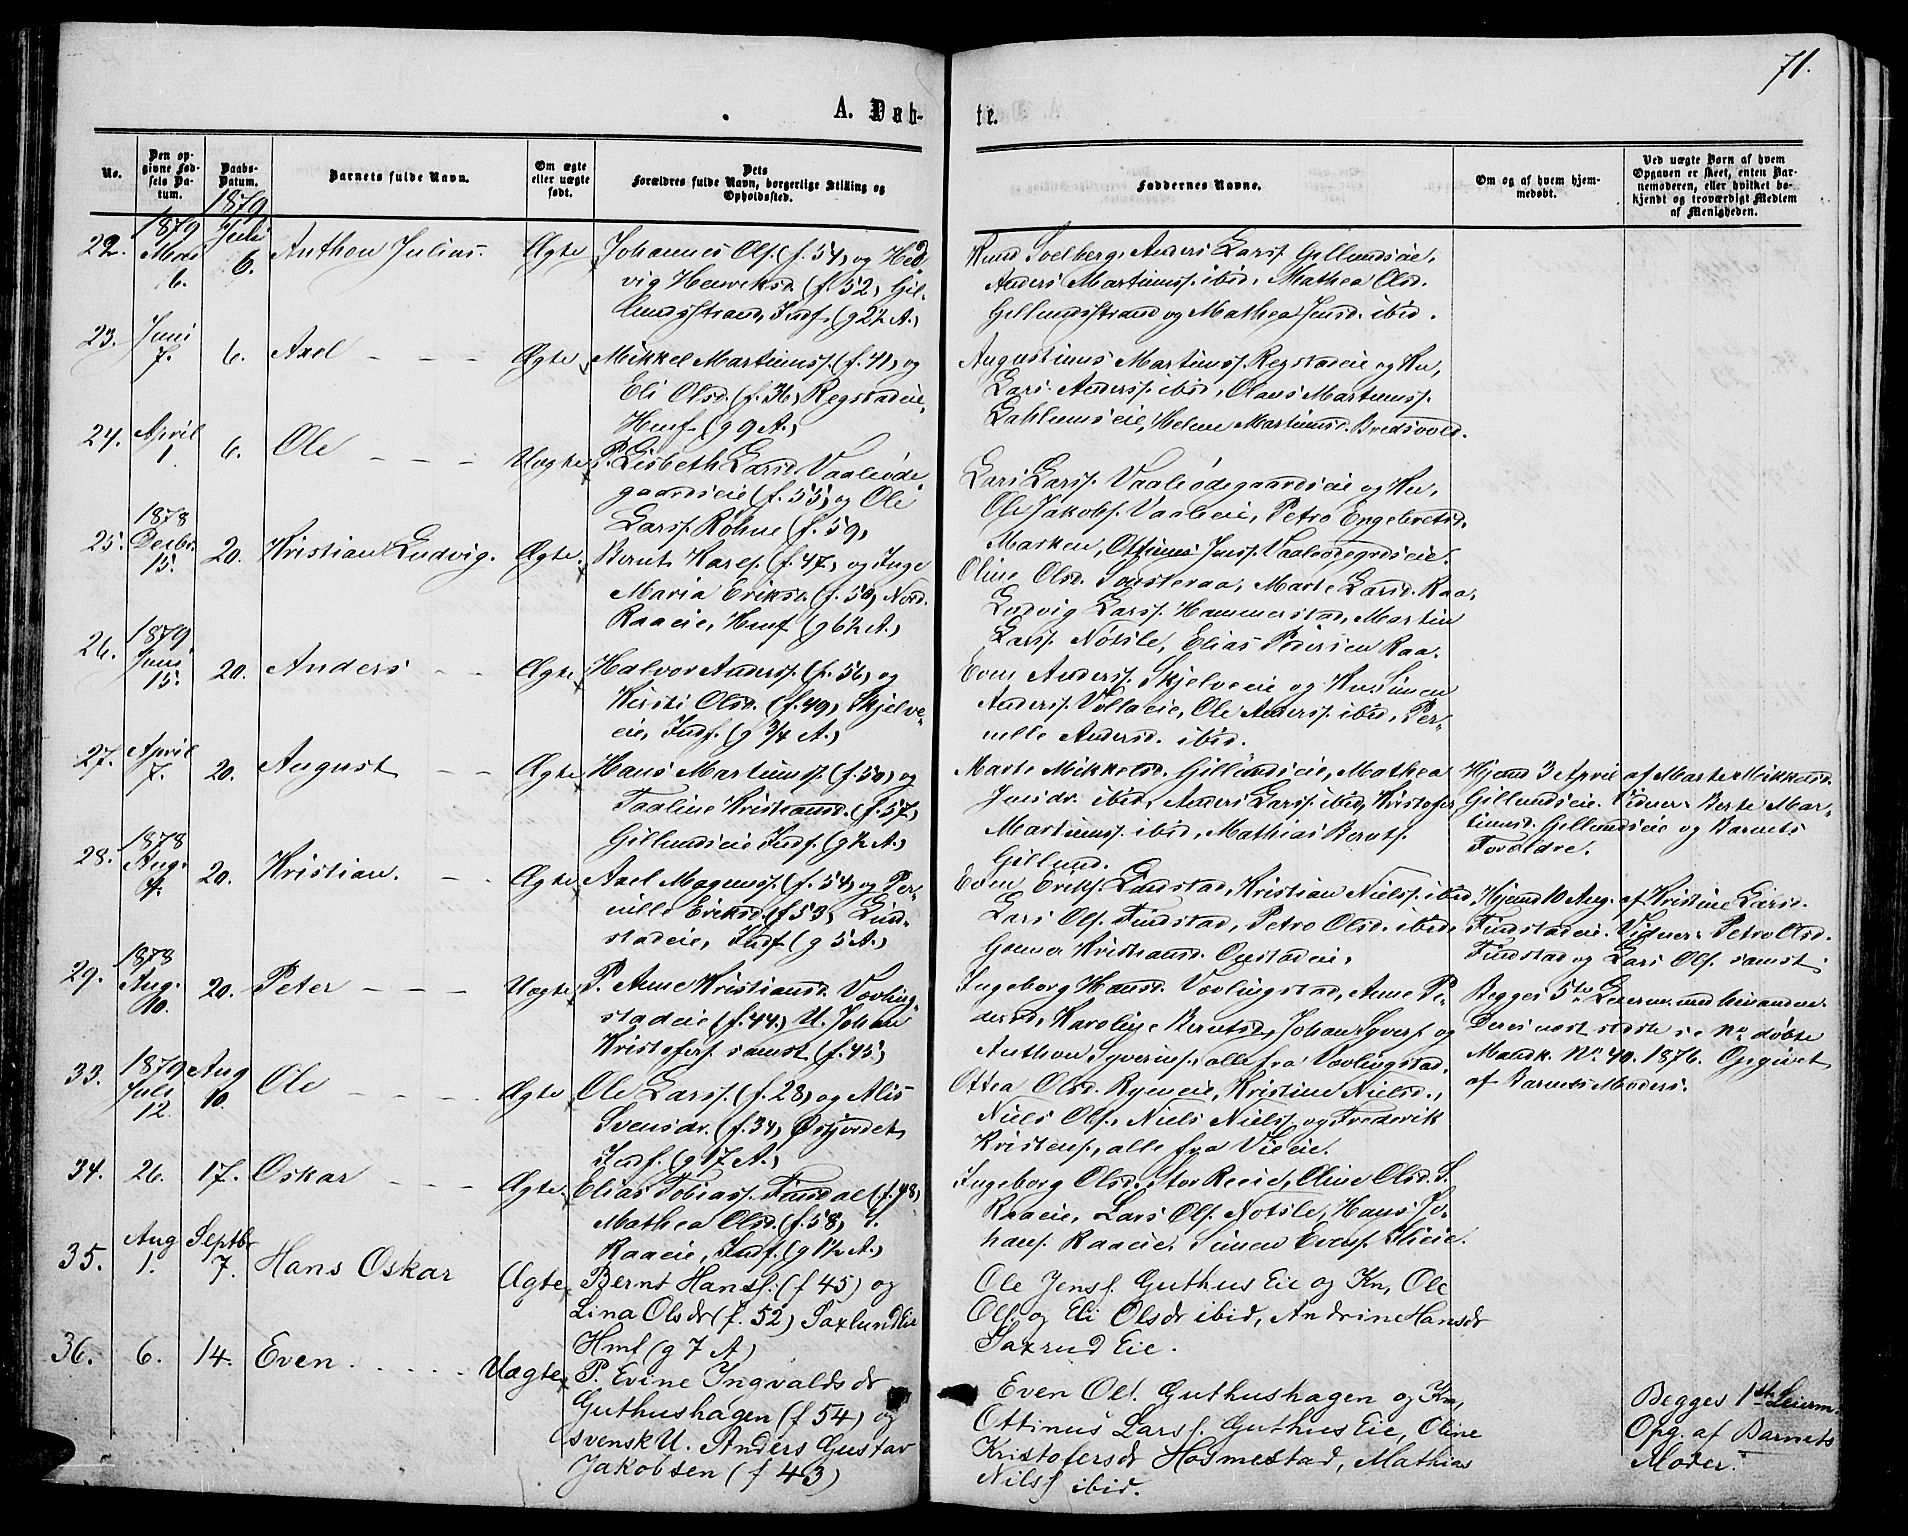 71.
A. Døb-
te.
No.
Den op-
givne Fød-
sels Da-
tum.
Daabs-
Datum.
Barnets fulde Navn.
Om ægte
eller uægte
født.
Dets
Forældres fulde Navn, borgerlige Stilling og
Opholdssted.
Faddernes Navne.
Om og af hvem hjem-
medøbt.
Ved uægte Børn af hvem
Opgaven er skeet, enten Bar-
nemoderen, eller hvilket be-
kjendt og troværdigt Medlem
af Menigheden.
22. 1879 6. 1879 Juli 6. Anthon Julius. Ægte
Johannes Ols. (f. 54) og Hed-
vig Henriksd. (f. 52) Gil-
lundsstrand, Indf. (g 2½ A.)
Knud Solberg, Anders Larss. Gillundseie,
Anders Martinuss. ibid, Mathea Olsd.
Gillundsstrand og Mathea Jensd. ibid.
23. Juni 7. 6. Axel Ægte
Mikkel Martinuss. (f. 41) og
Eli Olsd. (f. 36) Regstadeie,
Hmf. (g 9 A.)
Augustinus Martinuss. Regstadeie og Kn,
Lars Anderss. ibid, Olaus Martinuss.
Dahlumseie, Helene Martinusd. Bredsvold.
24. April 1 6. Ole Uægte
P. Lisbeth Larsd. Vaaleøde-
gaardseie (f. 55) og Ole
Larss. Røhne (f. 59)
Lars Larss. Vaaleødegaardseie og Kn,
Ole Jakobs. Vaaleeie, Petro Engebretsd.
Marken, Ottinus Jenss. Vaaleødegrdseie.
25. 1878 Decbr. 15. 20. Kristian Ludvig. Ægte
Bernt Kares. (f. 47) og Inge
Maria Eriksd. (f. 50) Nord.
Raaeie, Hmf. (g 6½ A.)
Oline Olsd. Tousteraa, Marte Larsd. Raa,
Ludvig Larss. Hammerstad, Martin
Larss. Nötsle, Elias Pedersen Raa.
26. 1879 Juni 15. 20. Anders Ægte
Halvor Anderss. (f. 56) og
Kirsti Olsd. (f. 49) Skjelve-
eie, Indf. (g ¾ A.)
Even Anderss. Skjelveeie og Kn, Simen
Anderss. Vollaeie, Ole Anderss. ibid, Per-
nille Andersd. ibid.
27. April 7. 20. August Ægte
Hans Martinuss. (f. 50) og
Taaline Kristiansd. (f. 57)
Gillundseie Indf. (g ½ A.)
Marte Mikkelsd. Gillundseie, Mathea
Jensdr. ibid, Anders Larss. ibid, Kristofer
Martinuss. ibid, Mathias Bernts.
Gillund.
Hjemd 3 April af Marte Mikkelsd.
Gillundseie. Vidner: Berte Mar-
tinusd. Gillundseie og Barnets
Forældre.
28. 1878 Aug. 4. 20. Kristian. Ægte
Axel Magnuss. (f. 54) og Per-
nille Eriksd. (f 53) Lind-
stadeie, Indf. (g 5 A.)
Even Eriks. Lindstad, Kristian Niels. ibid,
Lars Ols. Findstad, Petro Olsd. ibid,
Gunner Kristiansd. Onstadeie.
Hjemd 10 Aug. af Kristine Larsd.
Findstadeie. Vidner: Petro Olsd.
Findstad og Lars Ols. samst.
29. 1878 Aug. 10. 20. Peter Uægte
P. Anne Kristiansd. Vovling-
stadeie (f. 44) U. Johan
Kristofers. samst. (f. 45)
Ingeborg Hansd. Vovlingstad, Anne Pe-
dersd, Karoline Berntsd, Johan Syvers. og
Anthon Syverins., alle fra Vovlingstad.
Begges 5te Leierm. med hinanden.
Deres næst sidste se No. døbte
Mandk. No. 40. 1876. Opgivet
af Barnets Moder.
33. 1879 Juli 12. Aug 10. Ole Ægte
Ole Larss. (f. 28) og Alis
Svensdr. (f. 34) Østjordet
Indf. (g 17 A.)
Ottea Olsd. Ryneeie, Kristine Nielsd.,
Niels Ols., Niels Niels. og Frederik
Kristens., alle fra Vieeie.
34. 26. 17. Oskar Ægte
Elias Tobiass. Finsdal (f. 48)
Mathea Olsd. (f. 58) S.
Raaeie, Indf. (g 1½ A.)
Ingeborg Olsd. Stor Reeie, Oline Olsd. S.
Raaeie, Lars Ols. Notsle, Hans Jo-
hans. Raaeie, Simen Evens. Llieie.
35. Aug 1. Septbr 7. Hans Oskar Ægte
Bernt Hansf. (f 45) og
Lina Olsdr (f. 52) Saxlund Eie
Hmf (g 7 A)
Ole Jensf. Guthus Eie og Kn, Ole
Olf. og Eli Olsdr ibid, Andrine Hansdr
Saxrud Eie.
36. 6. 14. Even. Uægte
P. Evine Ingvaldsdr
Guthushagen (f 54) og
svensk U. Anders Gustav
Jakobsen (f 43)
Even Olf. Guthushagen og Kn,
Ottinus Larsf. Guthus Eie, Oline
Kristofersdr Hosmestad, Mathias
Nilsf ibid.
Begges 1ste Leierm.
Opg. af Barnets
Moder.